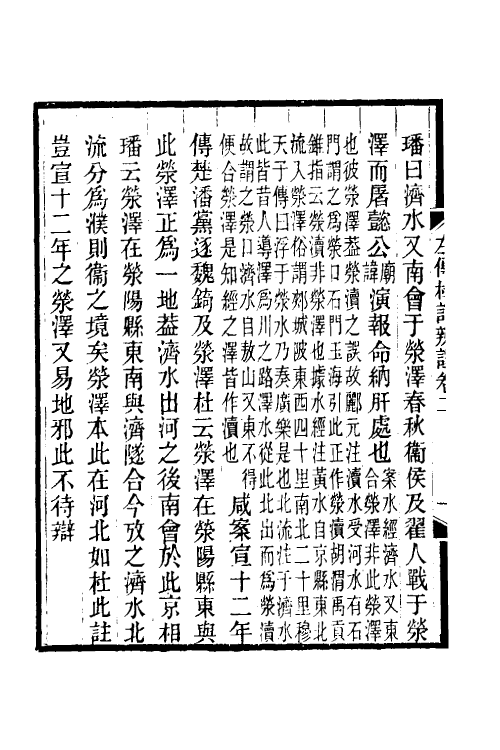 璠曰濟水又南會于滎澤春秋衞侯及翟人戰于滎
澤而屠懿公廟諱演報命納肝處也案水經濟水又東合滎澤非此滎澤
也彼滎澤葢滎瀆之誤故酈元注瀆水受河水有石
門謂之爲滎口石門玉海引此正作滎瀆胡渭禹貢
錐指云滎瀆非滎澤也據水經注黃水自京縣東北
流入滎澤俗謂郟城陂東西四十里南北二十里穆
天子傳曰浮于滎水乃奏廣樂是也北流注于濟水
此皆昔人導澤爲川之路澤水從此北出而爲滎瀆
故謂之滎口濟水自敖山又東不得
便合滎澤是知經之澤皆作瀆也　咸案宣十二年
傳楚潘黨逐魏錡及滎澤杜云滎澤在滎陽縣東與
此滎澤正爲一地葢濟水出河之後南會於此京相
璠云滎澤在滎陽縣東南與濟隧合今攷之濟水北
流分爲濮則衞之境矣滎澤本此在河北如杜此註
豈宣十二年之滎澤又易地邪此不待辯
左傳杜註辨證卷二